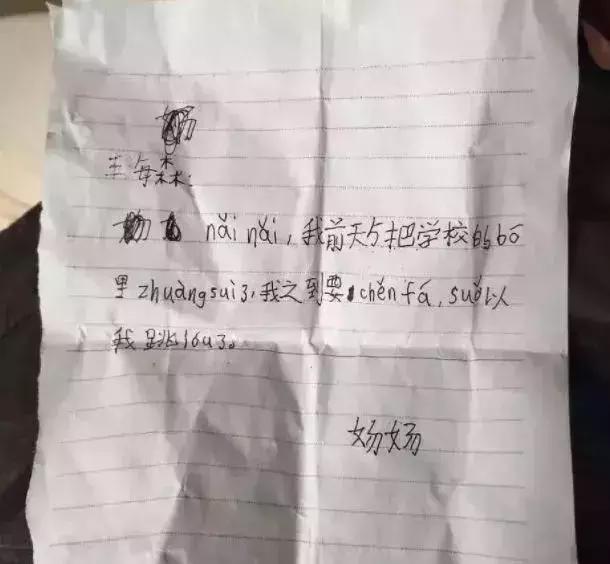 王每森:
nǎi nǎi, 我前天与把学校的bō
里zhuàng suì了, 我之到要chěn fá, suǒ以
我跳lóu了。